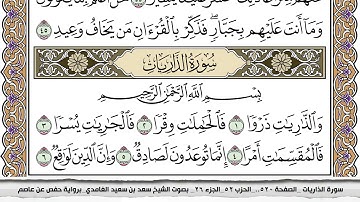 وَمَآ أَنتَ عَلَيْهِم بِجَبَّارٍ ۖ فَذَكِّرْ بِٱلْقُرْءَانِ مَن يَخَافُ وَعِيدِ ٤٥
سُورَةُ الذَّارِيَاتِ
بِسْمِ ٱللَّهِ ٱلرَّحْمَٰنِ ٱلرَّحِيمِ
وَٱلذَّٰرِيَٰتِ ذَرْوًا ١ فَٱلْحَٰمِلَٰتِ وِقْرًا ٢ فَٱلْجَٰرِيَٰتِ يُسْرًا ٣
فَٱلْمُقَسِّمَٰتِ أَمْرًا ٤ إِنَّمَا تُوعَدُونَ لَصَادِقٌ ٥ وَإِنَّ ٱلدِّينَ لَوَٰقِعٌ ٦
سورة الذاريات _ الصفحة -٥٢٠_ الحزب ٥٢_ الجزء ٢٦_ بصوت الشيخ سعد بن سعيد الغامدي _برواية حفص عن عاصم